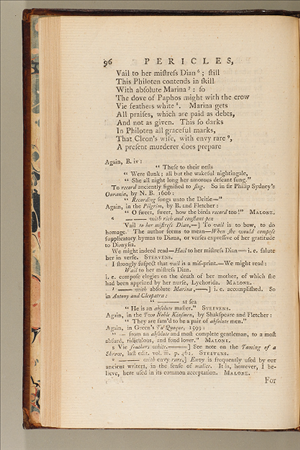 96 PERICLES,
Vail to her mistreſs Dian ⁸; ſtill
This Philoten contends in ſkill
With abſolute Marina ⁹: ſo
The dove of Paphos might with the crow
Vie feathers white ¹. Marina gets
All praiſes, which are paid as debts,
And not as given. This ſo darks
In Philoten all graceful marks,
That Cleon's wife, with envy rare ²,
A preſent murderer does prepare
Again, B. iv:
" Theſe to their neſts
" Were ſlunk; all but the wakeful nightingale,
" She all night long her amorous deſcant ſung."
To record anciently ſignified to ſing. So in Sir Philip Sydney's
Ourania, by N. B. 1606:
" Recording ſongs unto the Deitie—"
Again, in the Pilgrim, by B. and Fletcher:
" O ſweet, ſweet, how the birds record too!" MALONE.
⁸ ——— with rich and conſtant pen
Vail to her miſtreſs Dian,—] To vail is to bow, to do
homage. The author ſeems to mean—When ſhe would compoſe
ſupplicatory hymns to Diana, or verſes expreſſive of her gratitude
to Dionyſia.
We might indeed read—Hail to her miſtreſs Dian— i. e. ſalute
her in verſe. STEEVENS.
I ſtrongly ſuſpect that vail is a miſ-print.—We might read:
Wail to her miſtreſs Dian.
i. e. compoſe elegies on the death of her mother, of which ſhe
had been apprized by her nurſe, Lychorida. MALONE.
⁹ ——— with abſolute Marina,——] i. e. accompliſhed. So
in Antony and Cleopatra:
" ——— at ſea
" He is an abſolute maſter." STEEVENS.
Again, in the Two Noble Kinſmen, by Shakſpeare and Fletcher:
" They are fam'd to be a pair of abſolute men."
Again, in Green's Tu Quoque, 1599:
" — from an abſolute and moſt complete gentleman, to a moſt
abſurd, ridiculous, and fond lover." MALONE.
¹ Vie feathers white.———] See note on the Taming of a
Shrew, laſt edit. vol. iii. p. 461. STEEVENS.
² ——— with envy rare,] Envy is frequently uſed by our
ancient writers, in the ſenſe of malice. It is, however, I be-
lieve, here uſed in its common acceptation. MALONE.
For